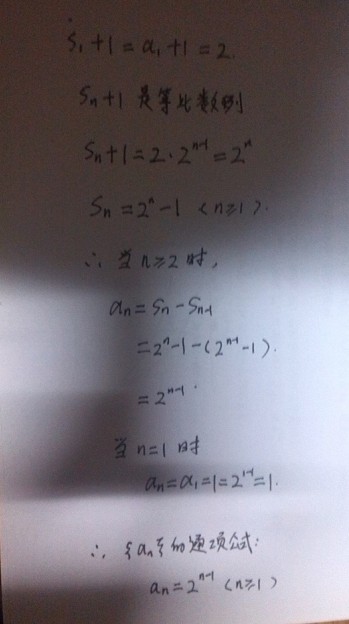 S₁+1=a₁+1=2.
Sₙ+1 是等比数列
Sₙ+1=2·2ⁿ⁻¹=2ⁿ
Sₙ=2ⁿ-1 (n≥1).
∴ 当n≥2时,
aₙ=Sₙ-Sₙ₋₁
=2ⁿ-1-(2ⁿ⁻¹-1).
=2ⁿ⁻¹.
当n=1时
aₙ=a₁=1=2¹⁻¹=1.
∴ {aₙ}的通项公式:
aₙ=2ⁿ⁻¹ (n≥1)